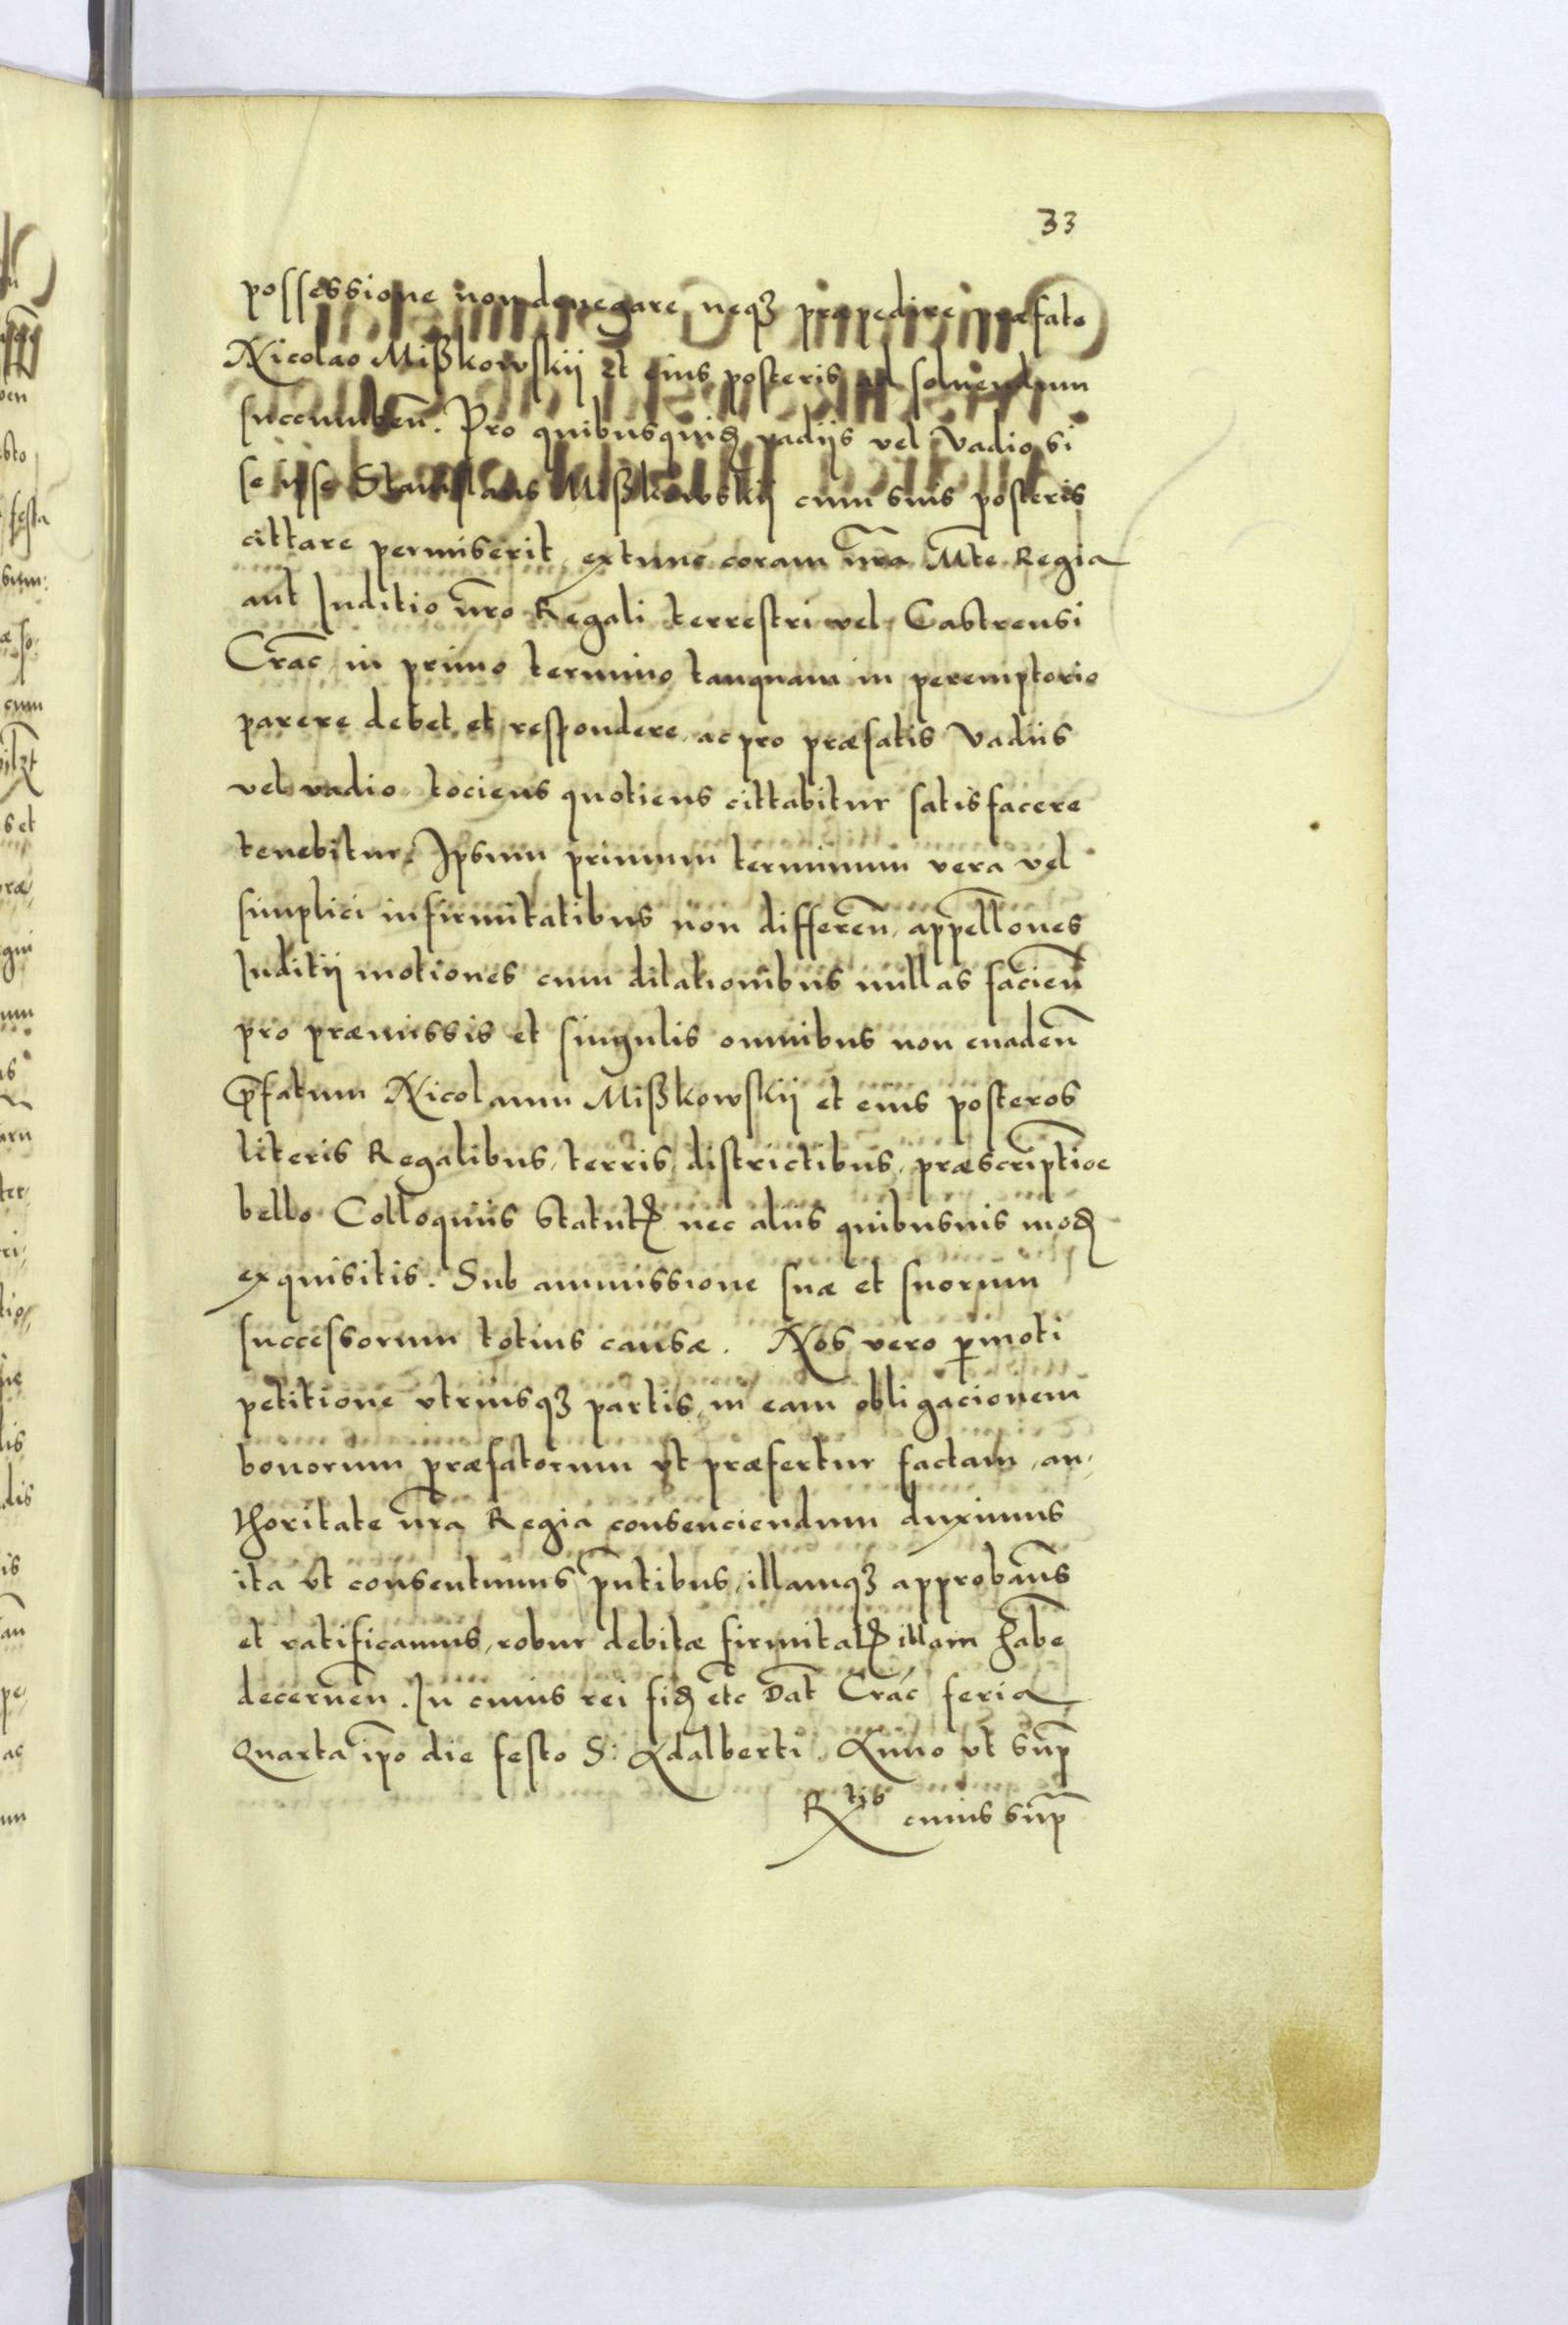 33
possessione non denegare neqꝫ præpedire præfato
Nicolao Mißkowskij et eius posteris ad soluendum
succumbeñ. Pro quibusquidꝫ vadijs vel vadio si
se ipse Stanislaus Mißkowskij cum suis posteris
cittare permiserit, extunc coram nr̃a Mt̃e Regia
aut Juditio nr̃o Regali terrestri vel Castrensi
Crac̃ in primo termino tanquam in peremptorio
parere debet et respondere, ac pro præfatis Vadiis
vel vadio tociens quotiens cittabitur satisfacere
tenebitur. Ipsum primum terminum vera vel
simplici infirmitatibus non differeñ, appellõnes
Juditij motiones cum dilationibus nullas facieñ
pro præmissis et singulis omnibus non euadeñ
p̃fatum Nicolaum Mißkowskij et eius posteros
literis Regalibus, terris, districtibus, præscriptiõe
bello Colloquiis Statutꝭ nec aliis quibusuis modꝭ
exquisitis. Sub ammissione suæ et suorum
successorum totius causæ. Nos vero ꝑmoti
petitione vtriusqꝫ partis, in eam obligacionem
bonorum præfatorum vt præfertur factam, au,
thoritate nr̃a Regia consenciendum duximus
ita vt consentimus p̃ntibus, illamqꝫ approbam̃s
et ratificamus, robur debitæ firmitatꝭ illam habe
decerneñ. In cuius rei fidꝫ etc̃ Dat̃ Crac̃ feria
Quarta ip̃o die festo S: Adalberti. Anno vt sup̃
Rtis cuius sup̃